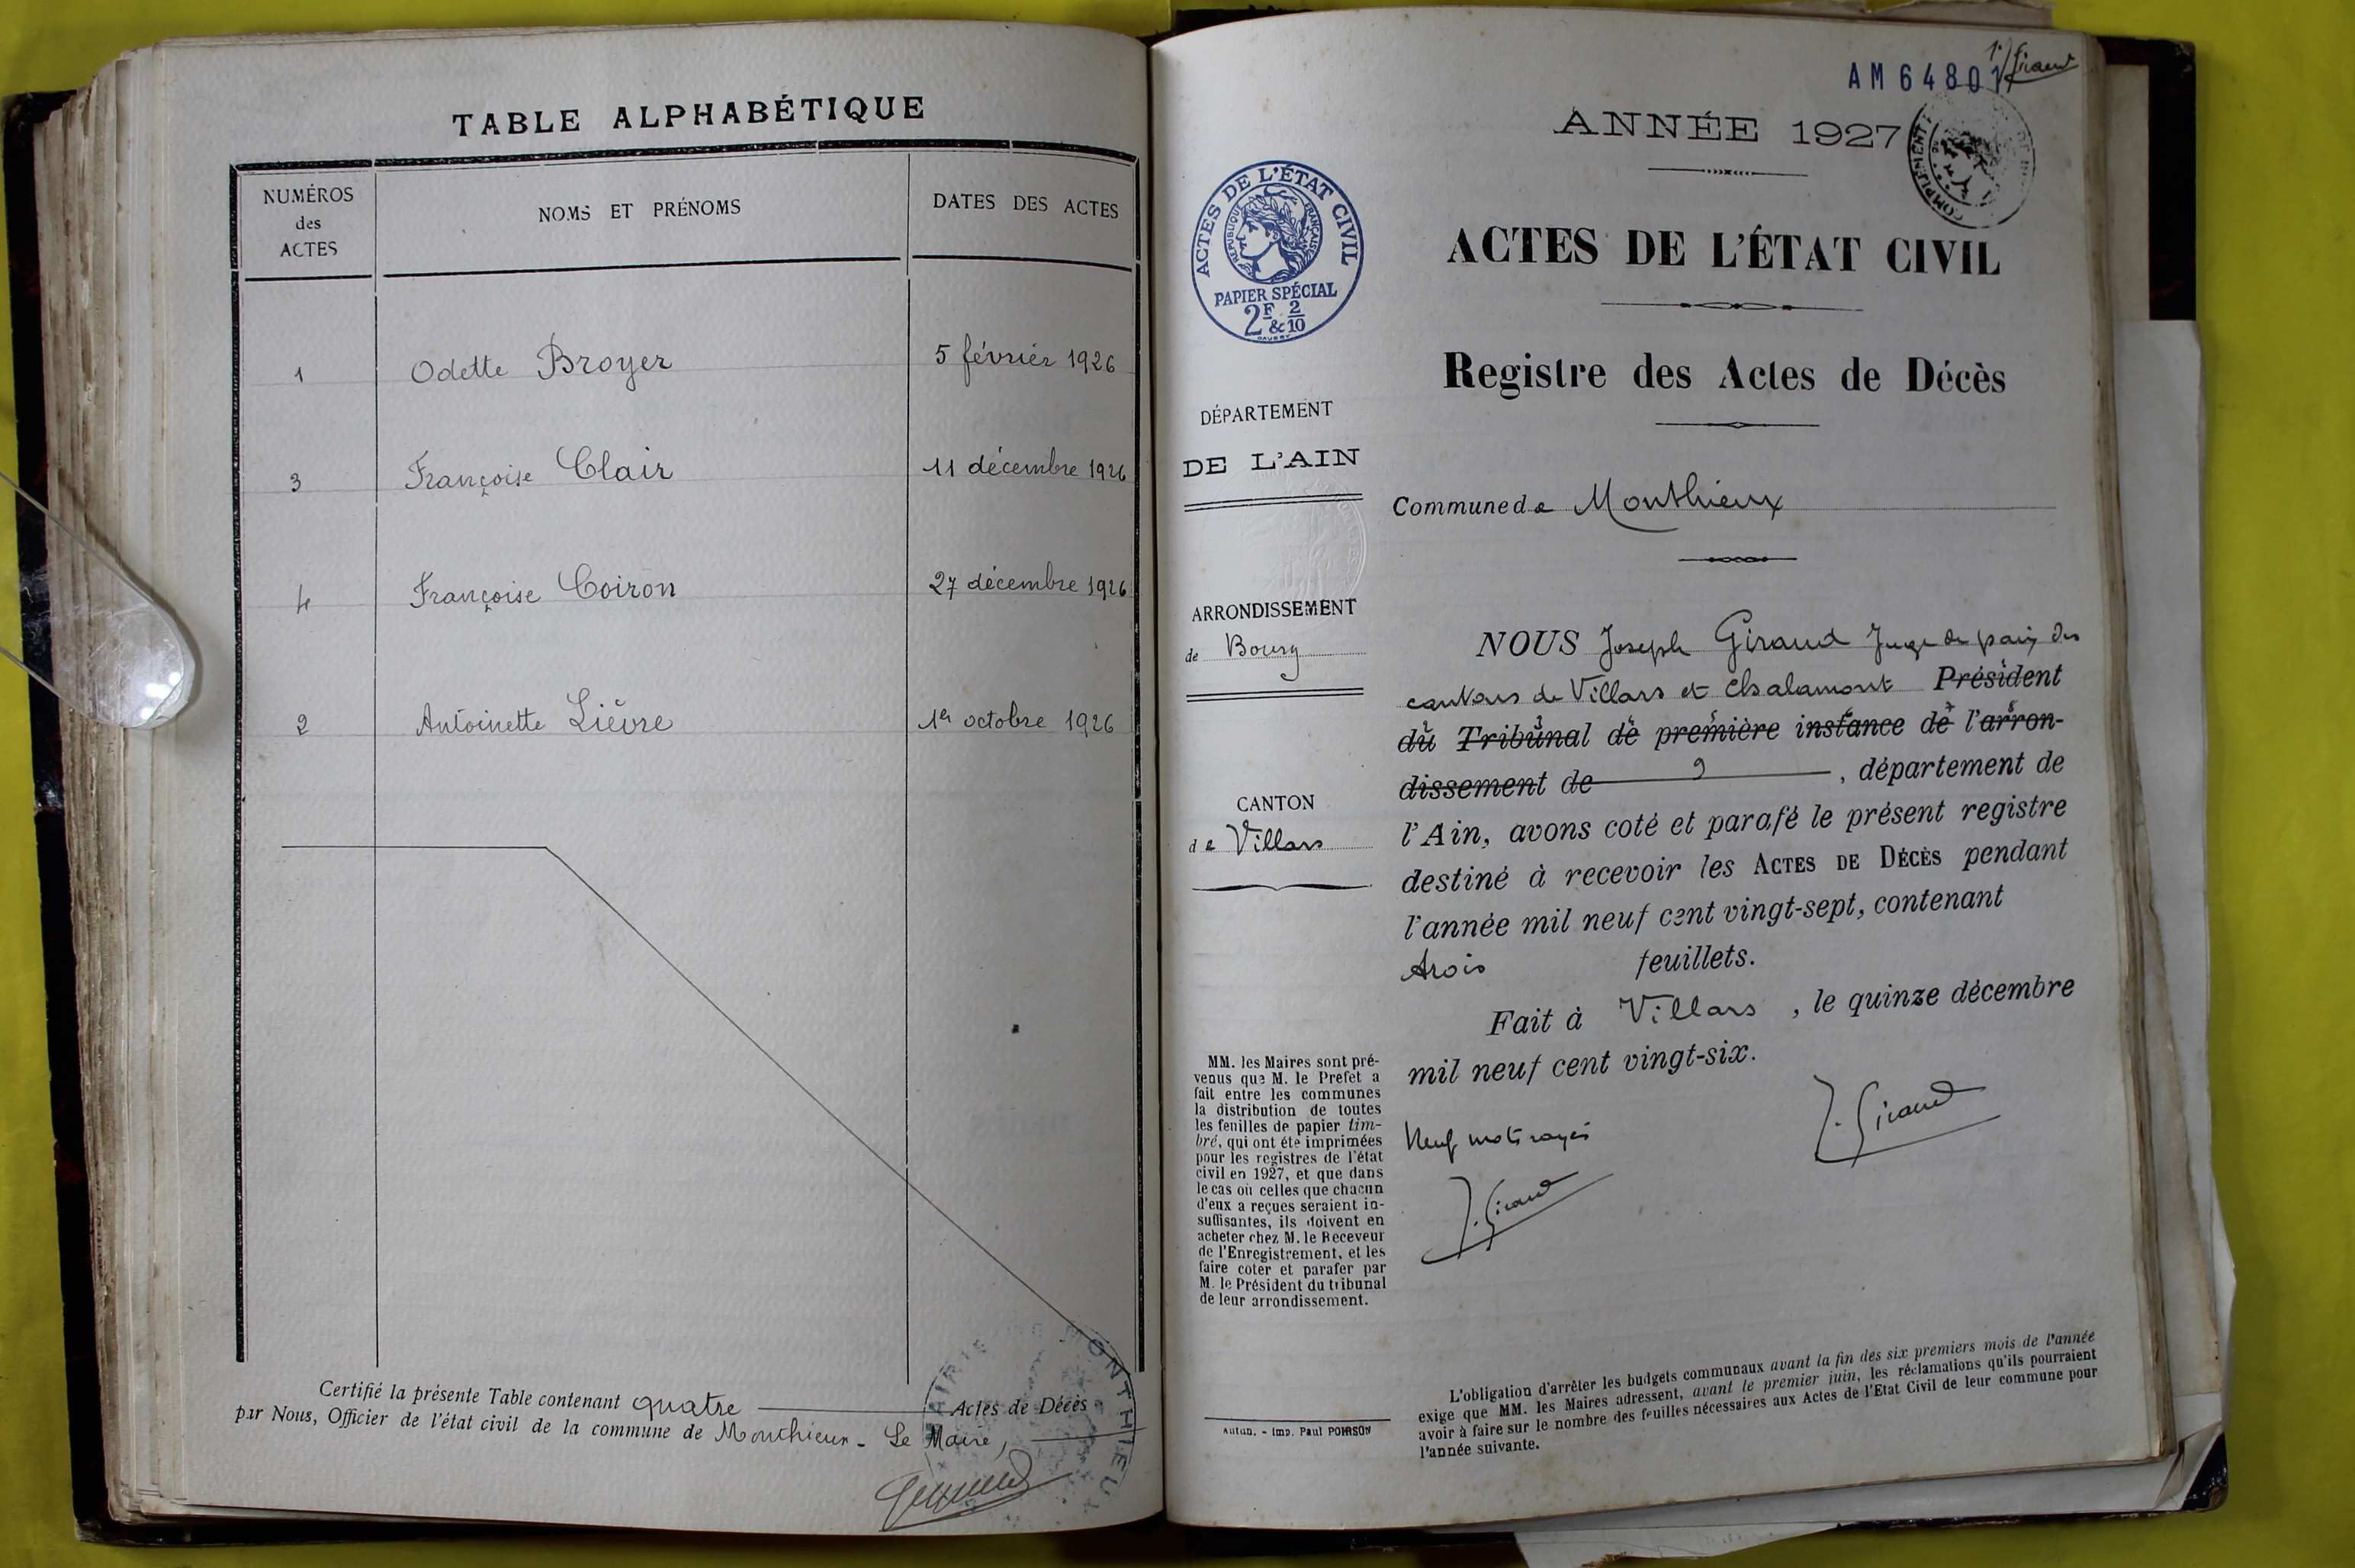 TABLE ALPHABÉTIQUE
NUMÉROS
des
ACTES
NOMS ET PRÉNOMS
DATES DES ACTES
1 Odette Broyer 5 février 1926
3 Françoise Clair 11 décembre 1926
4 Françoise Coiron 27 décembre 1926
2 Antoinette Lièvre 1er octobre 1926
Certifié la présente Table contenant quatre Actes de Décès
par Nous, Officier de l'état civil de la commune de Monthieux - Le Maire,
MAIRIE DE MONTHIEUX
AM 64801
1r/ Giraud
ANNÉE 1927
COMPLEMENT
ACTES DE L'ÉTAT CIVIL
RÉPUBLIQUE FRANÇAISE
PAPIER SPÉCIAL
2F & 2/10
DAUSSY
ACTES DE L'ÉTAT CIVIL
Registre des Actes de Décès
DÉPARTEMENT
DE L'AIN
Commune de Monthieux
ARRONDISSEMENT
de Bourg
CANTON
de Villars
NOUS Joseph Giraud Juge de paix des
cantons de Villars et Chalamont Président
du Tribunal de première instance de l'arron-
dissement de 9, département de
l'Ain, avons coté et parafé le présent registre
destiné à recevoir les ACTES DE DÉCÈS pendant
l'année mil neuf cent vingt-sept, contenant
trois feuillets.
Fait à Villars, le quinze décembre
mil neuf cent vingt-six.
J. Giraud
Neuf mots rayés
J. Giraud
MM. les Maires sont pré-
venus que M. le Prefet a
fait entre les communes
la distribution de toutes
les feuilles de papier tim-
bré, qui ont été imprimées
pour les registres de l'état
civil en 1927, et que dans
le cas où celles que chacun
d'eux a reçues seraient in-
suffisantes, ils doivent en
acheter chez M. le Receveur
de l'Enregistrement, et les
faire coter et parafer par
M. le Président du tribunal
de leur arrondissement.
Autun. - Imp. Paul POIRSON
L'obligation d'arrêter les budgets communaux avant la fin des six premiers mois de l'année
exige que MM. les Maires adressent, avant le premier juin, les réclamations qu'ils pourraient
avoir à faire sur le nombre des feuilles nécessaires aux Actes de l'Etat Civil de leur commune pour
l'année suivante.